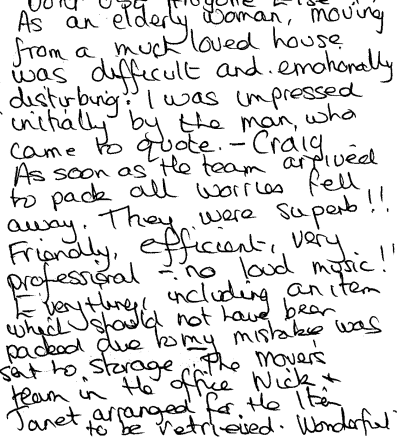 As an elderly woman, moving
from a much loved house
was difficult and emotionally
disturbing. I was impressed
initially by the man, who
came to quote. - Craig
As soon as the team arrived
to pack all worries fell
away. They were superb!!
Friendly, efficient, very
professional - no loud music!!
Everything, including an item
which should not have been
packed due to my mistake was
sent to storage. The movers
team in the office Nick +
Janet arranged for the item
to be retrieved. Wonderful